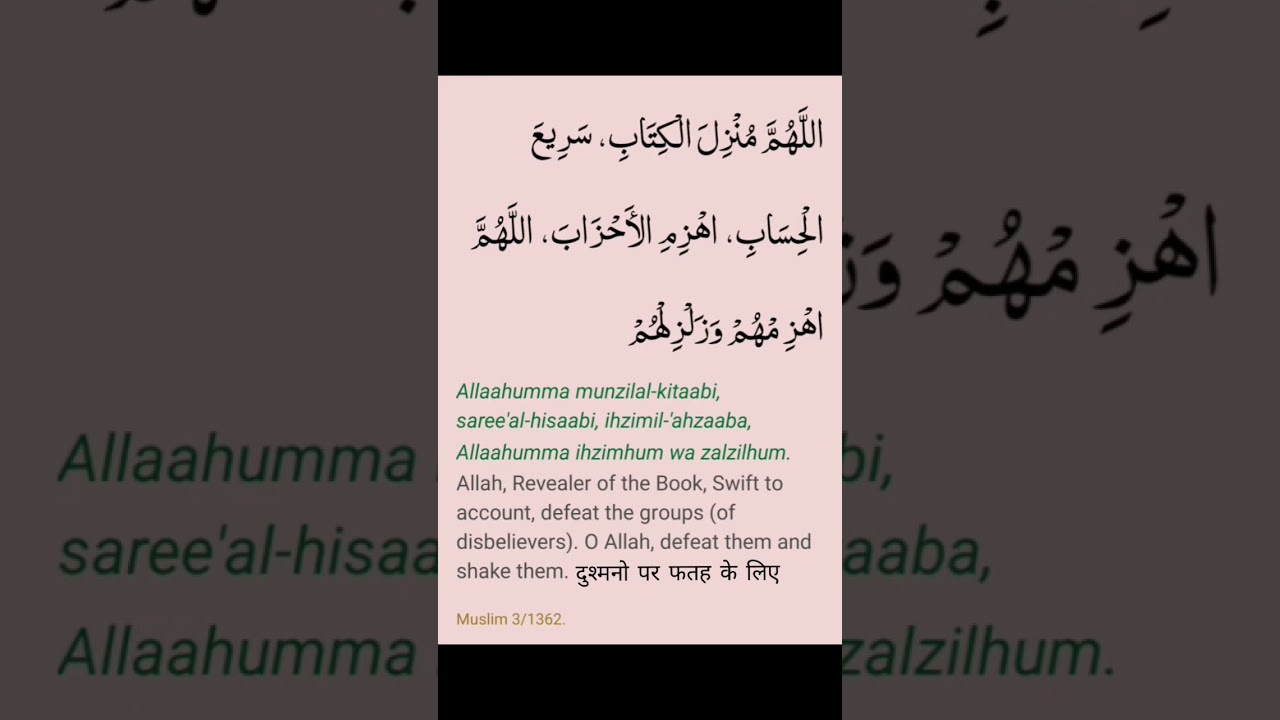 اللَّهُمَّ مُنْزِلَ الْكِتَابِ، سَرِيعَ
الْحِسَابِ، اهْزِمِ الأَحْزَابَ، اللَّهُمَّ
اهْزِمْهُمْ وَزَلْزِلْهُمْ
Allaahumma munzilal-kitaabi,
saree'al-hisaabi, ihzimil-'ahzaaba,
Allaahumma ihzimhum wa zalzilhum.
Allah, Revealer of the Book, Swift to
account, defeat the groups (of
disbelievers). O Allah, defeat them and
shake them. दुश्मनो पर फतह के लिए
Muslim 3/1362.